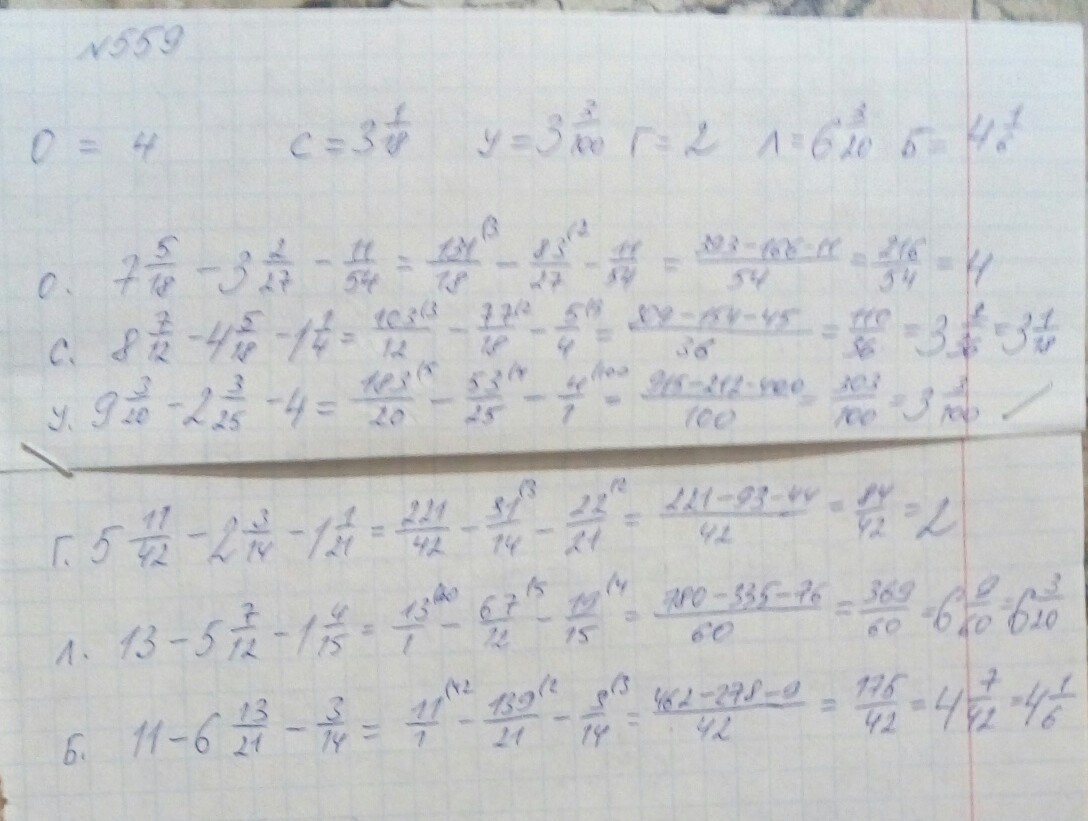 №559
О = 4 С = 3 1/18 У = 3 3/100 Г = 2 Л = 6 3/20 Б = 4 1/6
О. 7 5/18 - 3 2/27 - 11/54 = 131/18 (3 - 83/27 (2 - 11/54 = 393-166-11/54 = 216/54 = 4
С. 8 7/12 - 4 5/18 - 1 1/4 = 103/12 (3 - 77/18 (2 - 5/4 (9 = 309-154-45/36 = 110/36 = 3 2/36 = 3 1/18
У. 9 3/20 - 2 3/25 - 4 = 183/20 (5 - 53/25 (4 - 4/1 (100 = 915-212-400/100 = 303/100 = 3 3/100
Г. 5 11/42 - 2 3/14 - 1 1/21 = 221/42 - 31/14 (3 - 22/21 (2 = 221-93-44/42 = 84/42 = 2
Л. 13 - 5 7/12 - 1 4/15 = 13/1 (60 - 67/12 (5 - 19/15 (4 = 780-335-76/60 = 369/60 = 6 9/60 = 6 3/20
Б. 11 - 6 13/21 - 3/14 = 11/1 (42 - 139/21 (2 - 3/14 (3 = 462-278-9/42 = 175/42 = 4 7/42 = 4 1/6